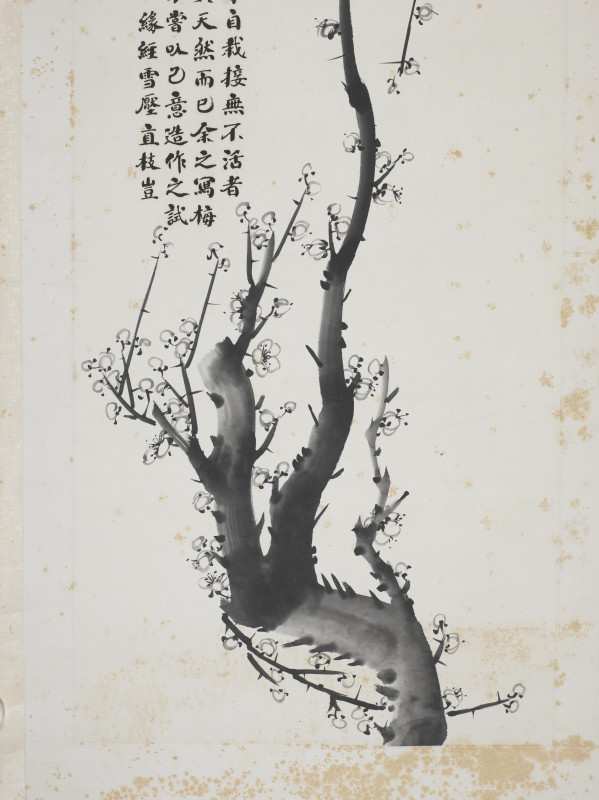 自栽接無不活者
天然而已余之寫梅
嘗以己意造作之試
緣經雪壓直枝豈